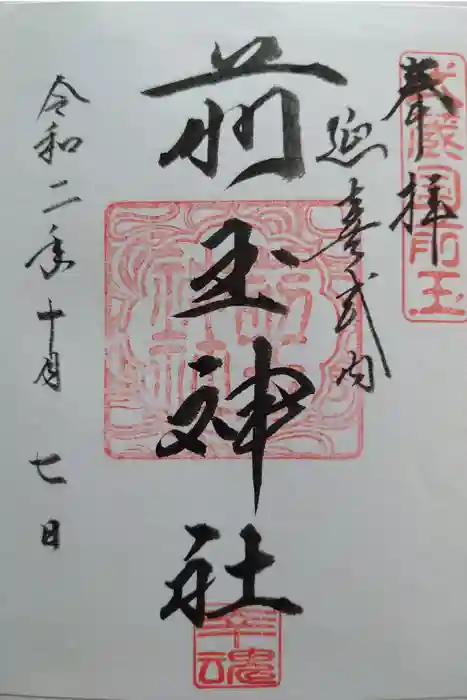 奉拝
武蔵国前玉
延喜式内
前玉神社
幸魂
令和二年十月七日